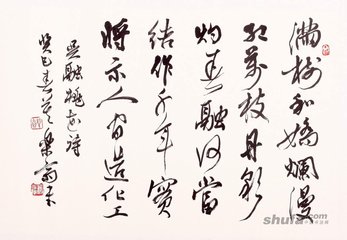 滿樹和嬌爛漫
红萬枝丹彩
灼春融何當
結作千年實
將示人间造化工
吴融桃花诗
癸巳春